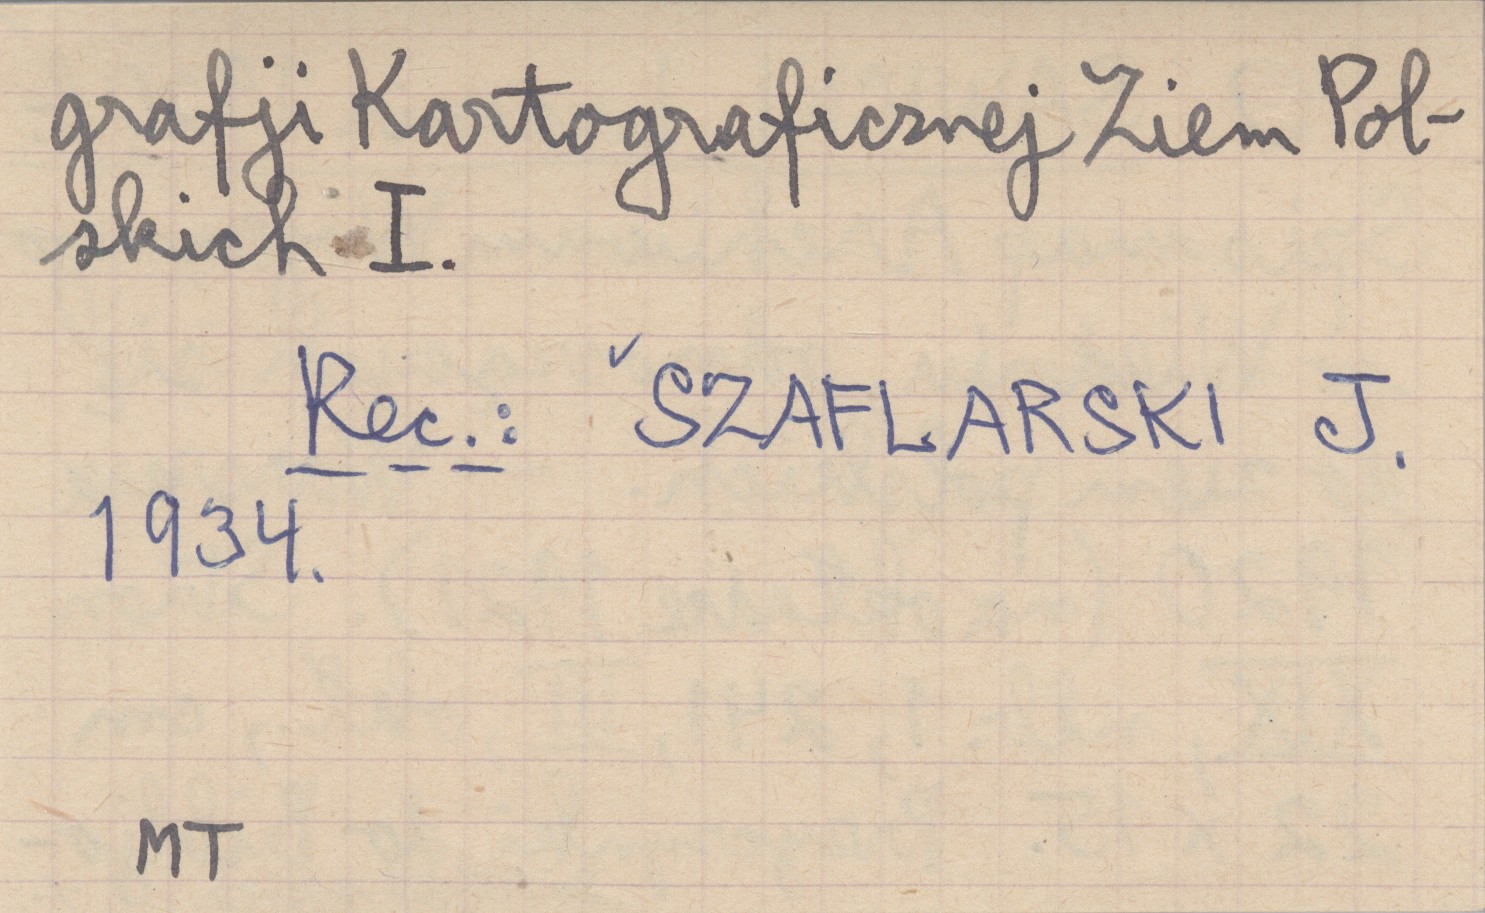 grafji Kartograficznej Ziem Pol-
skich I.
Rec.: ✓SZAFLARSKI J.
1934.
MT